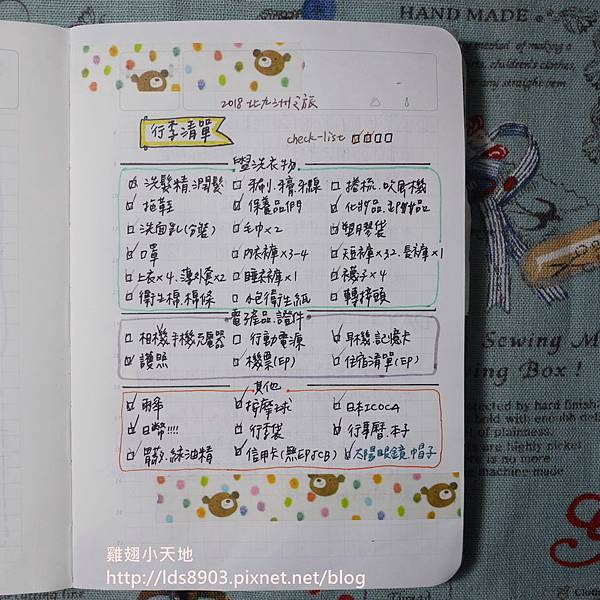 HAND MADE
2018 北九州之旅
行李清單
check-list
盥洗衣物
洗髮精.潤髮 牙刷.牙膏.牙線 捲梳.吹風機
拖鞋 保養品們 化妝品.卸妝品
洗面乳(分裝) 毛巾×2 塑膠袋
口罩 內衣褲×3-4 短褲×32.長褲×1
上衣×4.薄外套×2 睡衣褲×1 襪子×4
衛生棉.棉條 小包衛生紙 轉接頭
電子產品.證件
相機.手機.充電器 行動電源 耳機.記憶卡
護照 機票(EP) 住宿清單(EP)
其他
雨傘 按摩球 日本ICOCA
日幣!!!! 行李袋 行事曆.本子
胃散.綠油精 信用卡(無EPJCB) 太陽眼鏡.帽子
Sewing
Sewing Box !
by hard finishing
of plainness.
are highly picket
is no more
machine made
雞翅小天地
http://lds8903.pixnet.net/blog